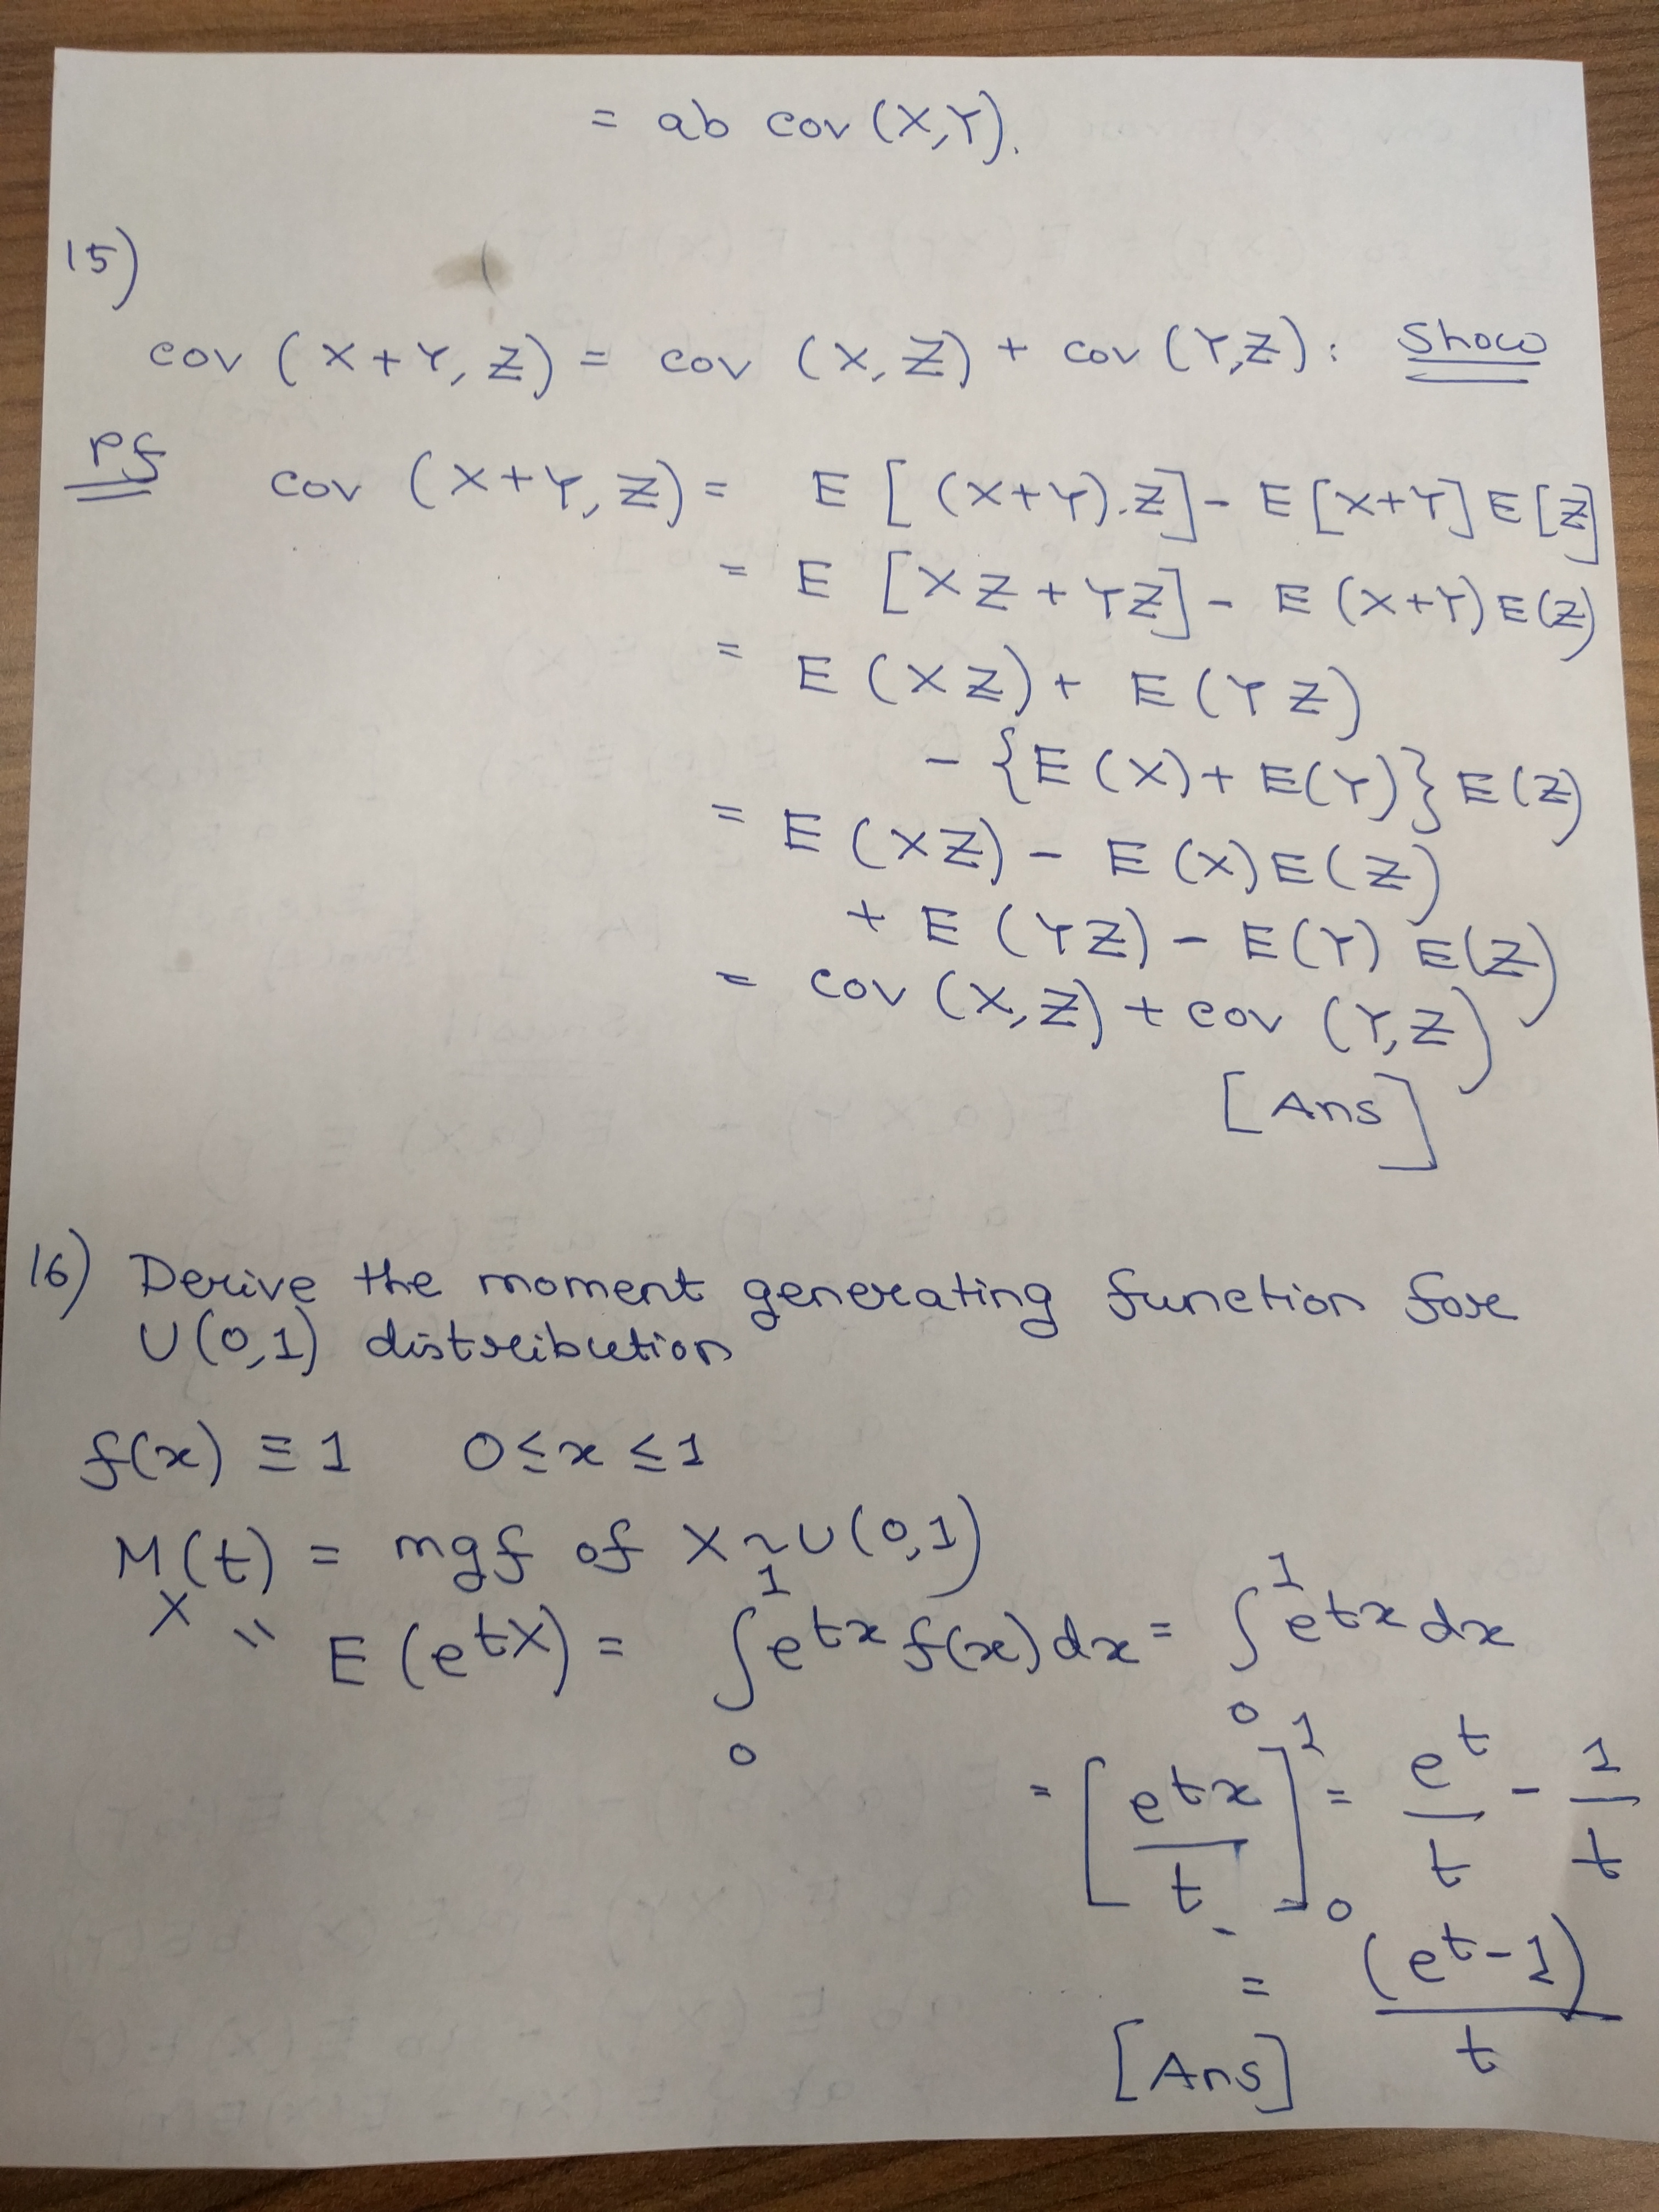 = ab cov (X,Y).
15)
cov (X+Y, Z) = cov (X, Z) + cov (Y,Z) : Show
Pf cov (X+Y, Z) = E [(X+Y).Z] - E[X+Y] E[Z]
= E [XZ + YZ] - E(X+Y) E(Z)
= E(XZ) + E(YZ)
- {E(X) + E(Y)} E(Z)
= E(XZ) - E(X)E(Z)
+ E(YZ) - E(Y) E(Z)
= cov (X,Z) + cov (Y,Z)
[Ans]
16) Derive the moment generating function for
U(0,1) distribution
f(x) ≡ 1 0≤x≤1
M_X(t) = mgf of X~U(0,1)
" E(e^{tX}) = ∫_0^1 e^{tx} f(x) dx = ∫_0^1 e^{tx} dx
= [e^{tx}/t]_0^1 = e^t/t - 1/t
= (e^t - 1)/t
[Ans]